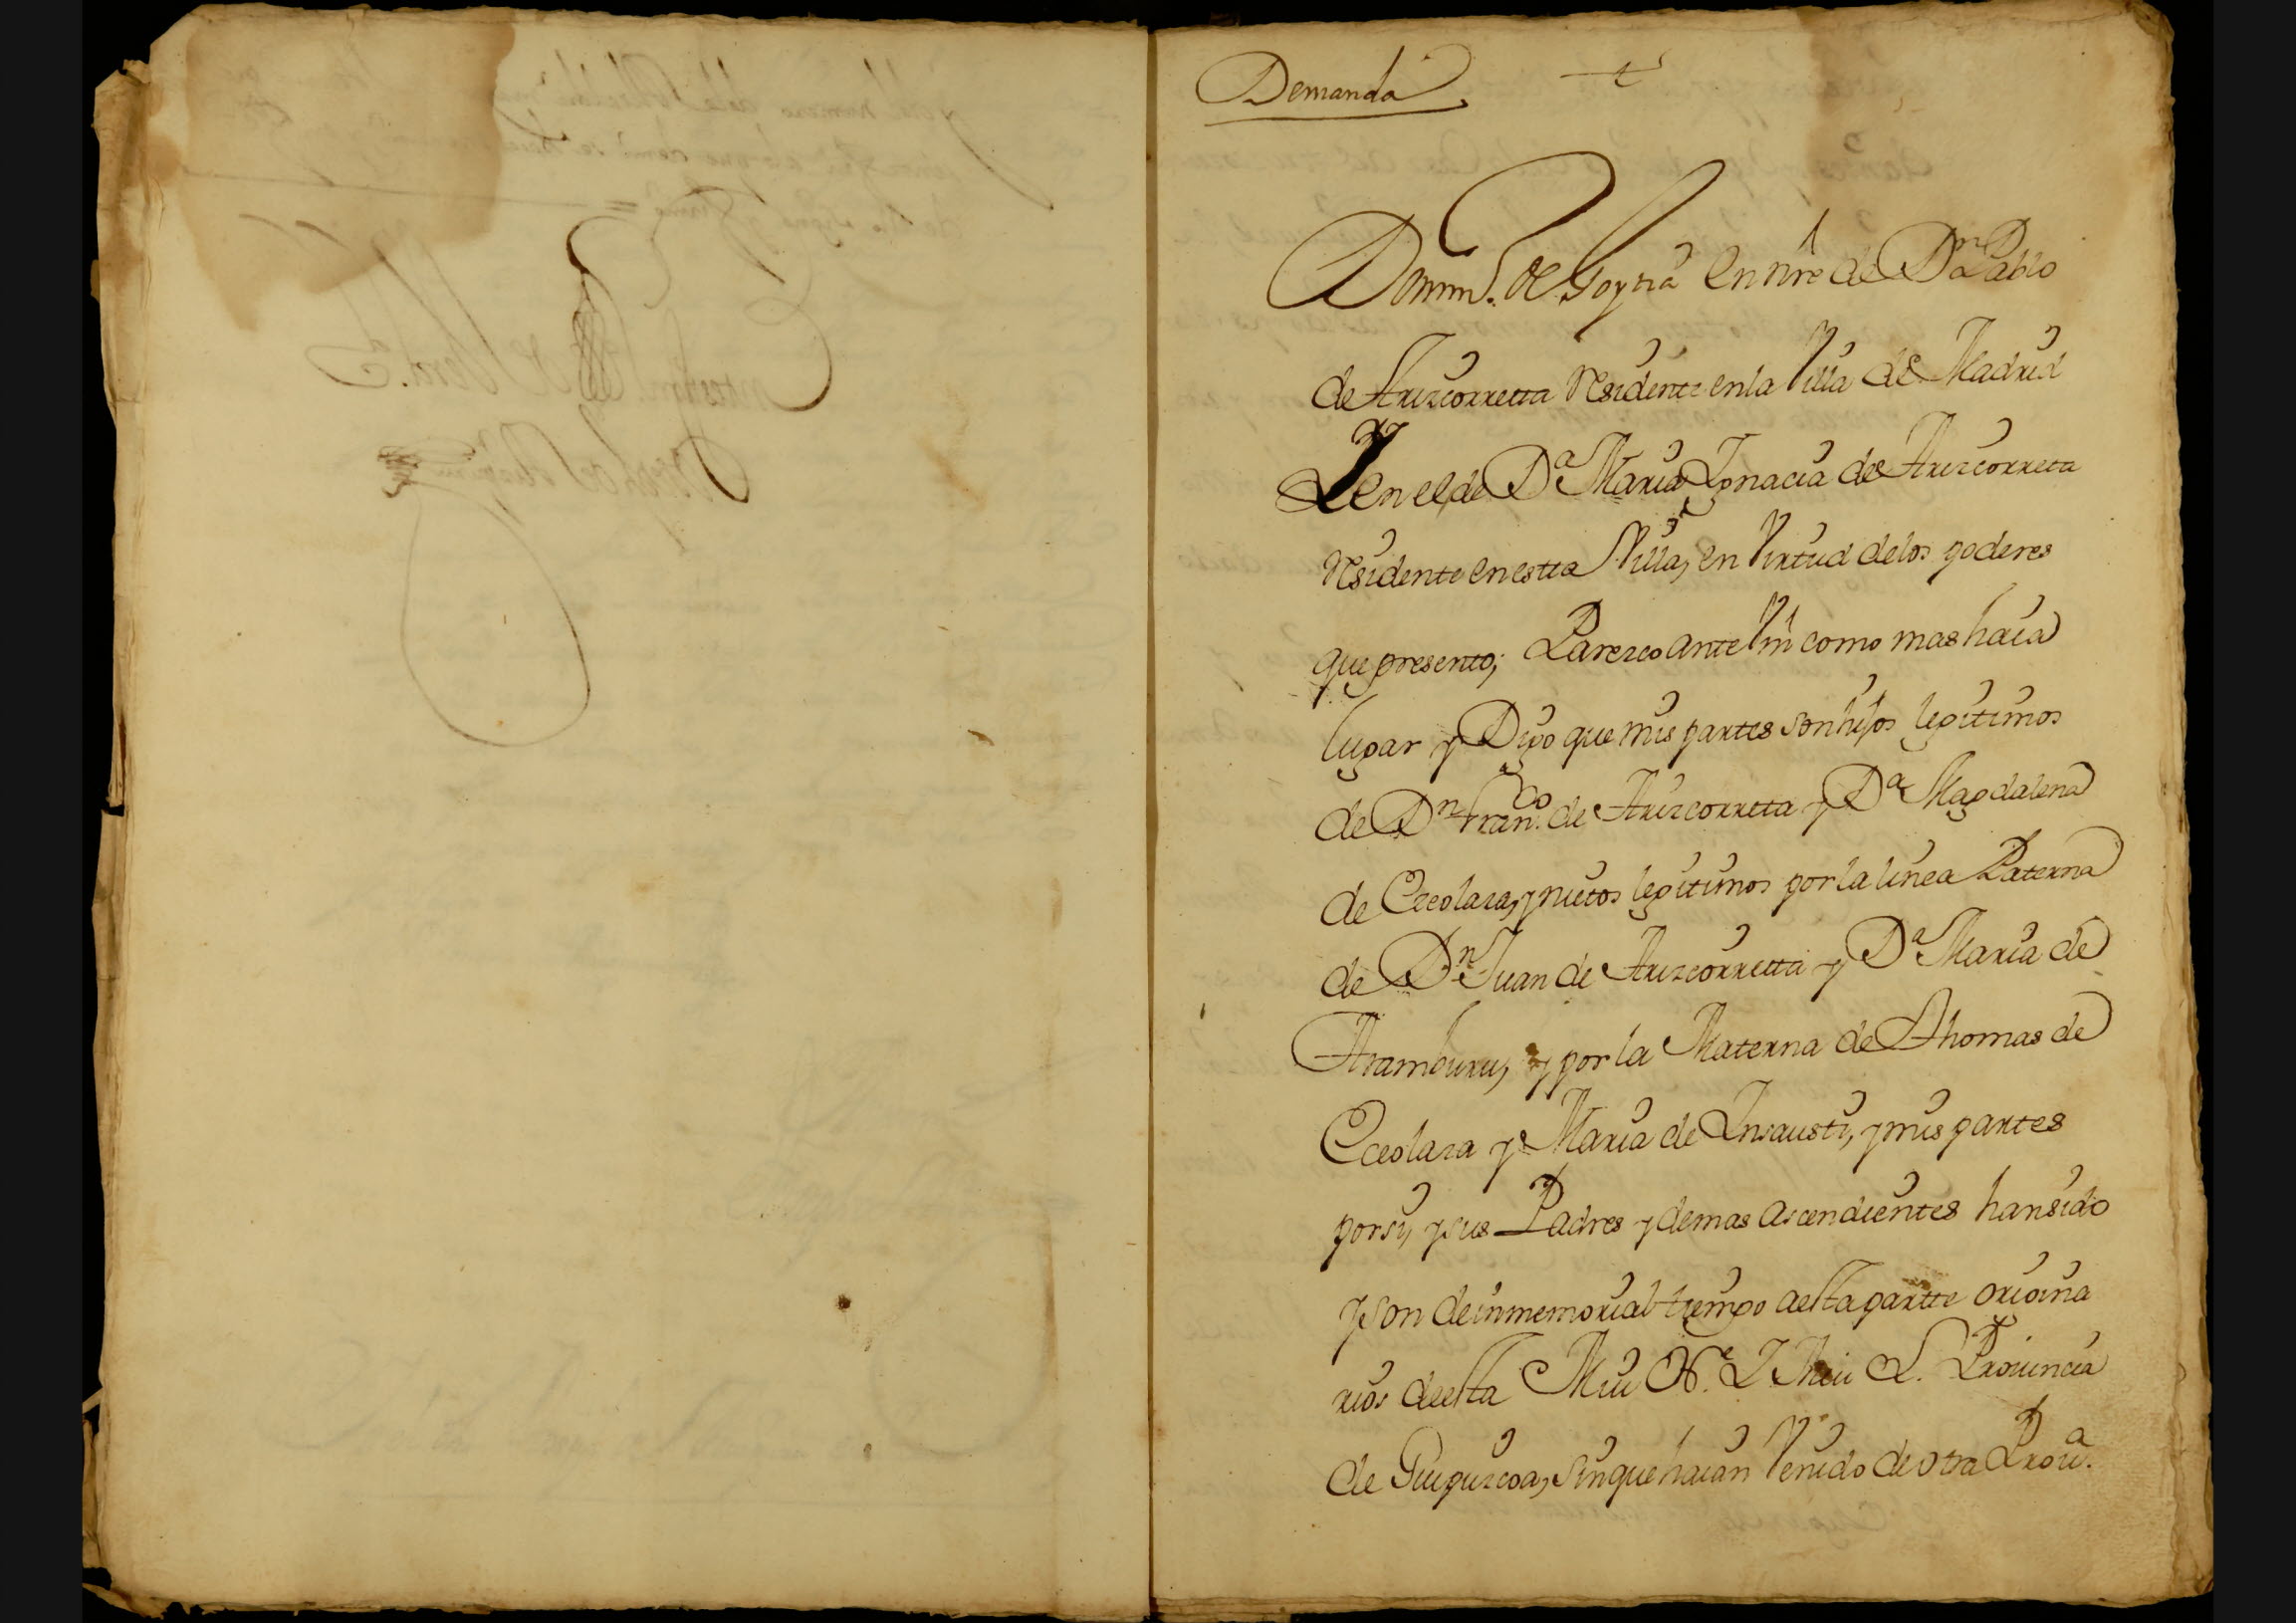 Demanda
Domin.º de Goytia en nre de Dn Pablo
de Arizcorretta Residente en la Villa de Madrid
Y en el de Dª Maria Ygnacia de Arizcorreta
Residente en estta Villa, en Virtud de los poderes
que presento; Parezco ante Vm como mas haia
lugar y Digo que mis partes son hijos legitimos
de Dn Franco. de Arizcorretta y Dª Magdalena
de Ezeolaza, y nietos legitimos por la linea Paterna
de Dn Juan de Arizcorretta y Dª Maria de
Aramburu, y por la Materna de Thomas de
Eceolaza y Maria de Ynsausti, y mis partes
por si, y sus Padres y demas ascendientes han sido
y son de inmemorial tiempo a esta partte origina
rios de esta Mui N. e Y Mui L. Prouincia
de Guipuzcoa, sin que haian Venido de otra Prouª.